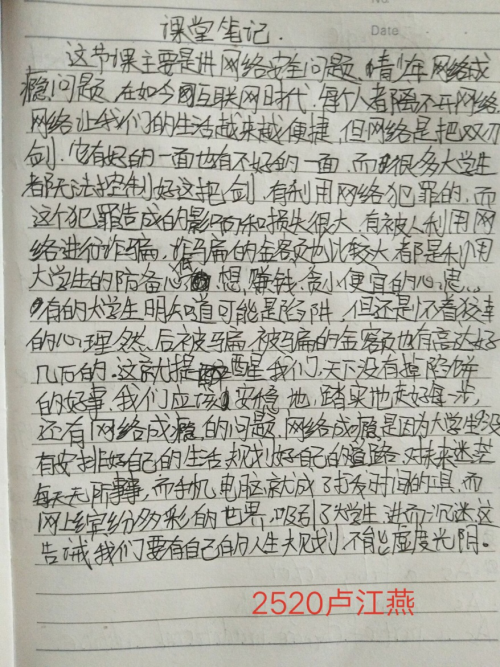 课堂笔记.
Date
这节课主要是讲网络安全问题、青少年网络成
瘾问题、在如今国互联网时代，每个人都离不开网络
网络让我们的生活越来越便捷，但网络是把双刃
剑、它有好的一面也有不好的一面，而很多大学生
都无法控制好这把剑，有利用网络犯罪的，而
这个犯罪造成的影响和损失很大，有被人利用网
络进行诈骗，诈骗的金额也比较大，都是利用
大学生的防备心低 想赚钱，贪小便宜的心思，
有的大学生明知道可能是陷阱，但还是怀着侥幸
的心理，然后被骗，被骗的金额也有高达好
几百的，这就提醒我们，天下没有掉陷饼
的好事，我们应该安稳地，踏实地走好每一步，
还有网络成瘾的问题，网络成瘾是因为大学生没
有安排好自己的生活，规划好自己的道路，对未来迷茫
每天无所事事，而手机，电脑就成了打发时间的工具，而
网上缤纷多彩的世界，吸引了大学生，进而沉迷，这
告诫我们要有自己的人生规划，不能虚度光阴。
2520卢江燕